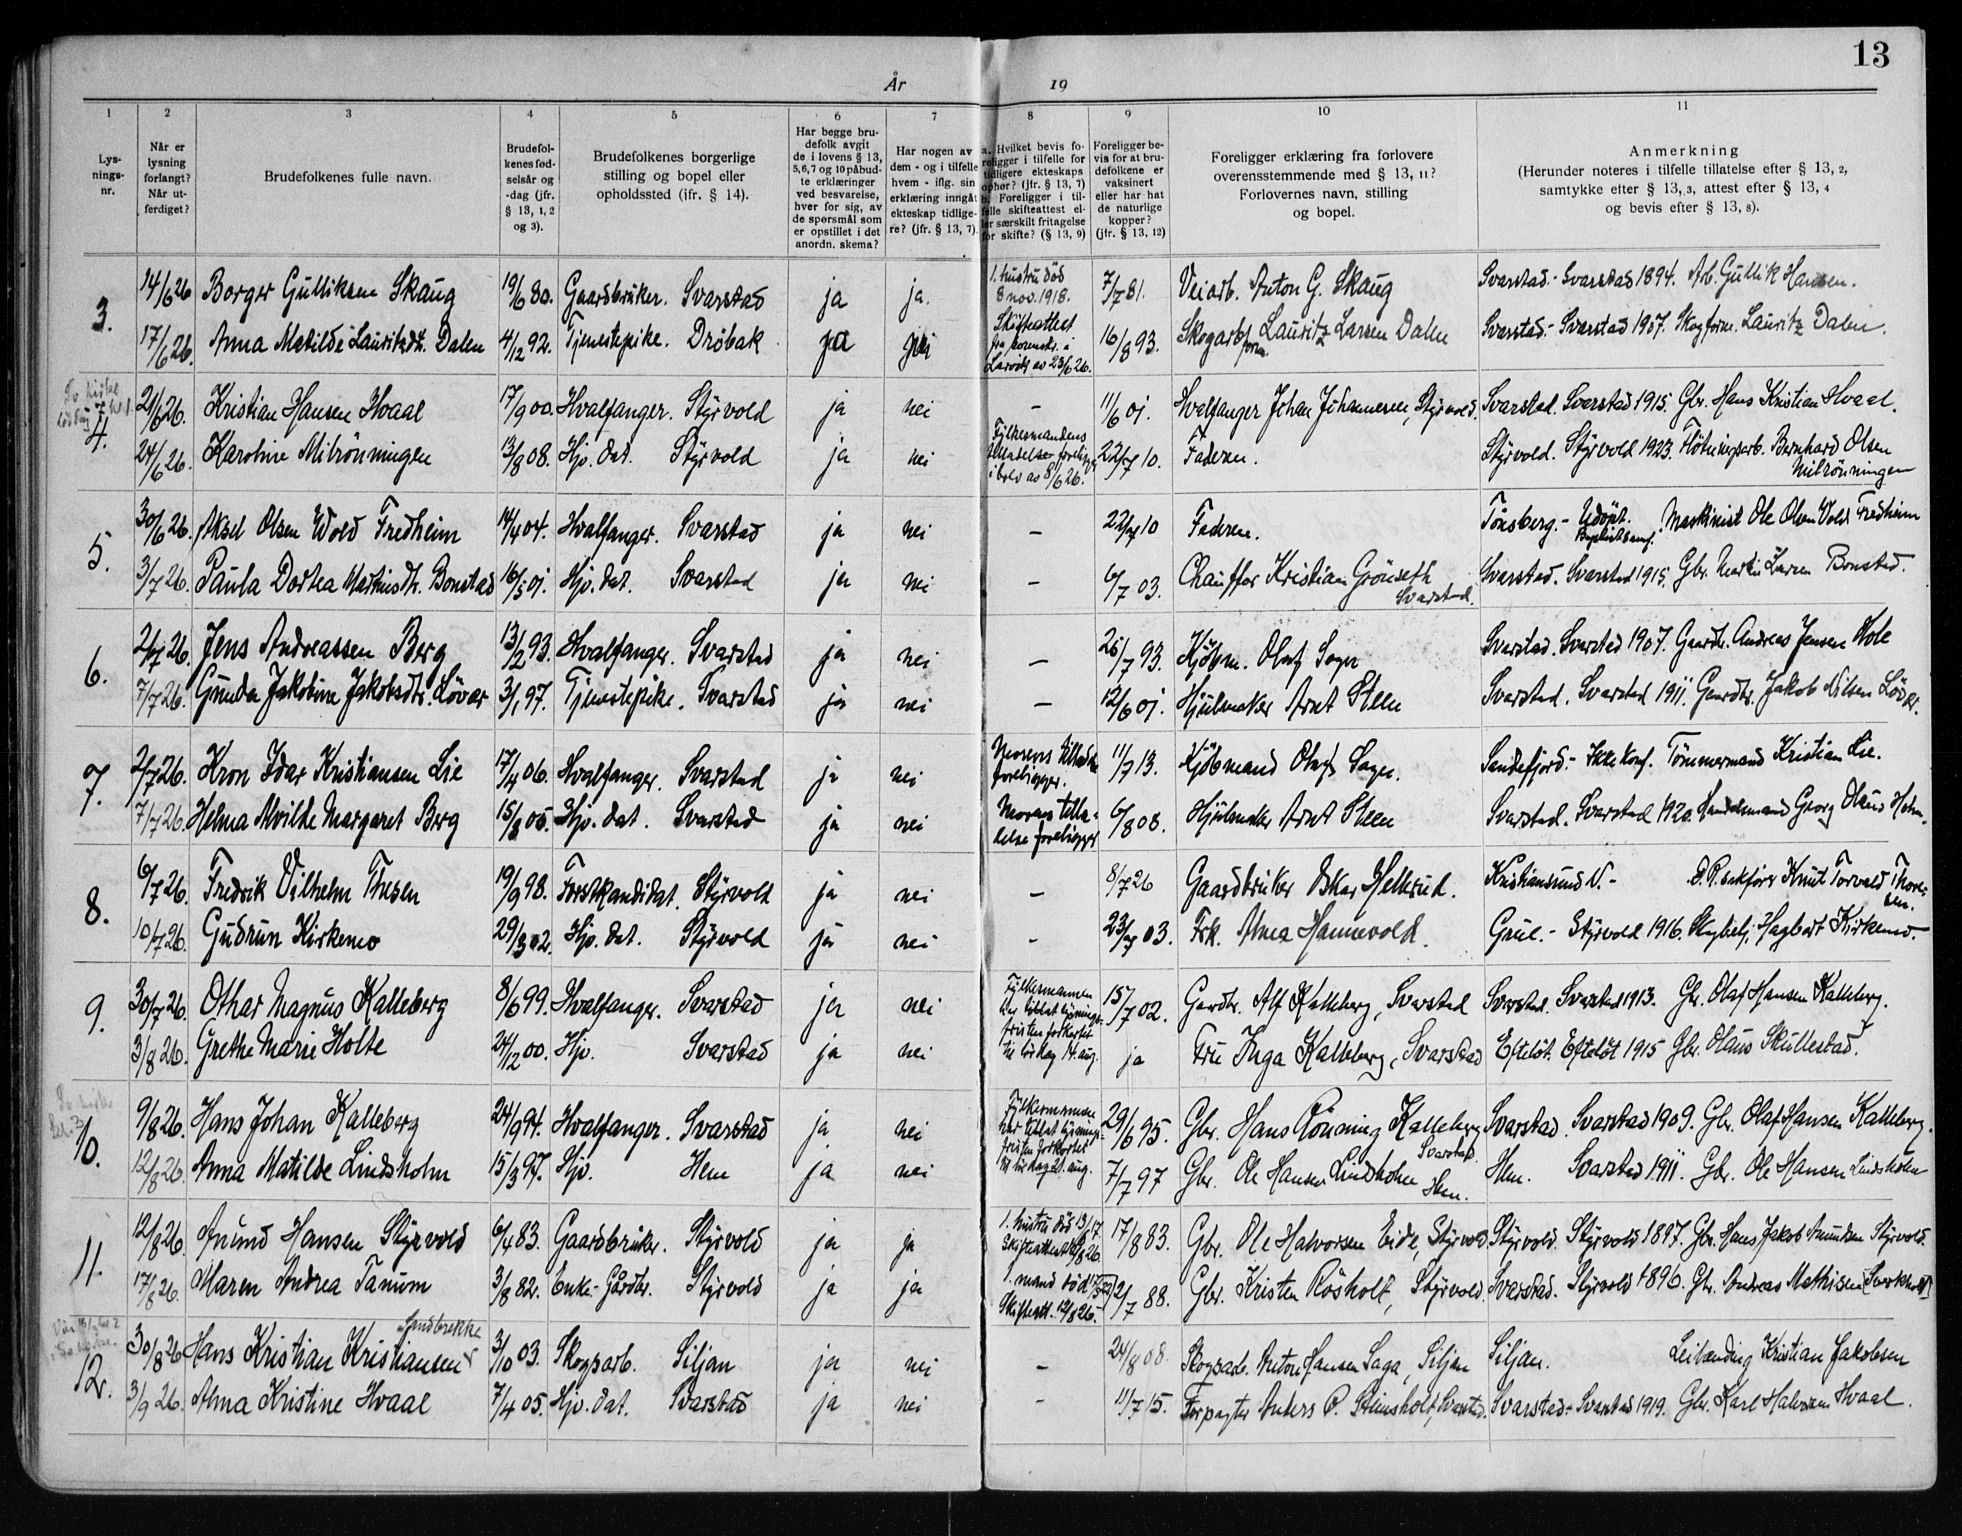 13
År 19
1 2 3 4 5 6 7 8 9 10 11
Lys-
nings-
nr.
Når er
lysning
forlangt?
Når ut-
ferdiget?
Brudefolkenes fulle navn.
Brudefol-
kenes fød-
selsår og
-dag (jfr.
§ 13, 1, 2
og 3).
Brudefolkenes borgerlige
stilling og bopel eller
opholdssted (ifr. § 14).
Har begge bru-
defolk avgit
de i lovens § 13,
5,6,7 og 10 påbud-
te erklæringer
ved besvarelse,
hver for sig, av
de spørsmål som
er opstillet i det
anordn. skema?
Har nogen av
dem - og i tilfelle
hvem - iflg. sin
erklæring inngåt
ekteskap tidlige-
re? (jfr. § 13, 7).
a. Hvilket bevis fo-
religger i tilfelle for
tidligere ekteskaps
ophør? (jfr. § 13, 7)
b. Foreligger i til-
felle skifteattest el-
ler særskilt fritagelse
for skifte? (§ 13, 9)
Foreligger be-
vis for at bru-
defolkene er
vaksinert
eller har hat
de naturlige
kopper?
(jfr. § 13, 12)
Foreligger erklæring fra forlovere
overensstemmende med § 13, 11?
Forlovernes navn, stilling
og bopel.
Anmerkning
(Herunder noteres i tilfelle tillatelse efter § 13, 2,
samtykke efter § 13, 3, attest efter § 13, 4
og bevis efter § 13, 8).
3. 14/6 26 Borger Gulliksen Skaug 19/6 80. Gaardbruker. Svarstad ja ja. 1. hustru död 8 nov. 1918. 7/7 81. Veiarb. Anton G. Skaug Svarstad - Svarstad 1894. Arb. Gullik Hansen.
17/6 26. Anna Matilde Lauritzdt. Dalen 4/12 92. Tjenestepike. Dröbak ja nei Skifteattest av 23/6 26. 16/8 93. Skogarb. Lauritz Larsen Dalen Svarstad - Svarstad 1907. Lauritz Dalen.
4. 21/6 26. Kristian Hansen Hvaal 17/9 00. Hvalfanger. Styrvold ja nei – 11/6 01. Hvalfanger Johan Johannesen, Styrvold. Svarstad. Svarstad 1915. Gbr. Hans Kristian Hvaal.
24/6 26. Karoline Milrönningen 13/8 08. Hjv. dat. Styrvold ja nei Fylkesmandens av 8/6 26. 22/7 10. Faderen. Styrvold. Styrvold 1923. Flötningsarb. Bernhard Olsen Milrönningen
5. 30/6 26. Aksel Olsen Wold Fredheim 14/4 04. Hvalfanger. Svarstad ja nei – 22/7 10 Faderen. Tönsberg. - Udöpt. Baptistsamf. Maskinist Ole Olsen Wold Fredheim
3/7 26. Paula Dortea Mathisdt. Bonstad 16/5 01. Hjv. dat. Svarstad ja nei – 6/7 03. Chauffør Kristian Grönseth Svarstad. Svarstad. Svarstad 1915. Gbr. Martin Larsen Bonstad.
6. 2/7 26. Jens Andreassen Berg 13/2 93. Hvalfanger. Svarstad ja nei – 26/7 93. Kjöbm. Olaf Sagen Svarstad. Svarstad 1907. Gaardbr. Andreas Jensen Hole
7/7 26. Gunda Jakobine Jakobsdtr. Lövar 3/1 97. Tjenestepike. Svarstad ja nei – 12/6 01. Hjulmaker Arnt Steen Svarstad. Svarstad 1911. Gaardbr. Jakob Nilsen
7. 2/7 26. Kron Idar Kristiansen Lie 17/4 06. Hvalfanger. Svarstad ja nei Morens foreligger. 11/7 13. Kjöbmand Olaf Sagen. Sandefjord. - Ikke konf. Tömmermand Kristian Lie.
7/7 26. Helma Alvilde Margaret Berg 15/8 05. Hjv. dat. Svarstad ja nei Morens tilla-delse foreligger 6/8 08. Hjulmaker Arnt Steen Svarstad. Svarstad 1920. Georg
8. 6/7 26. Fredrik Vilhelm Thesen 19/9 98. Forstkandidat. Styrvold ja nei – 8/7 26 Gaardbruker Oskar Hellerud. Kristiansund N. - O.R.sakfører Knut Torvald
10/7 26. Gudrun Kirkemo 29/3 02. Hjv. dat. Styrvold ja nei – 23/7 03. Frk. Alma Hannevold. Grue. - Styrvold 1916. Hagbart Kirkemo.
9. 30/7 26. Othar Magnus Kalleberg 8/6 99. Hvalfanger. Svarstad ja nei Fylkesmannen har tillat lysnings-fristen forkortet til lördag 14. aug. 15/7 02. Gaardbr. Alf Kalleberg, Svarstad Svarstad. Svarstad 1913. Gbr. Olaf Hansen Kalleberg.
3/8 26. Grethe Marie Holte 24/12 00. Hjv. Svarstad ja nei ja Fru Inga Kalleberg, Svarstad Eftelöt. Eftelöt 1915 Gbr. Olaus Skullestad.
10. 9/8 26. Hans Johan Kalleberg 24/9 94. Hvalfanger. Svarstad ja nei Fylkesmannen har tillat lysnings-fristen forkortet til lördag 21. aug. 29/6 95. Gbr. Hans Rönning Kalleberg Svarstad. Svarstad. Svarstad 1909. Gbr. Olaf Hansen Kalleberg.
12/8 26. Anna Matilde Lindsholm 15/3 97. Hjv. Hem ja nei 7/7 97 Gbr. Ole Hansen Lindsholm Hem. Hem. Svarstad 1911. Gbr. Ole Hansen Lindsholm
11. 12/8 26. Anund Hansen Styrvold 6/4 83. Gaardbruker. Styrvold ja ja 1. hustru död 17/8 83. Gbr. Ole Halvorsen Eide, Styrvold Styrvold. Styrvold 1897. Gbr. Hans Jakob Anundsen Styrvold.
17/8 26. Maren Andrea Tanum 3/8 82. Enke - Gårdbr. Styrvold ja ja 1. mand död Skifteatt. 12/8 26. 2/7 88. Gbr. Kristen Rösholt, Styrvold. Svarstad. Styrvold 1896. Gbr. Andreas Mathisen
12. 30/8 26 Hans Kristian Kristiansen Sandbrekke 3/10 03. Skogsarb. Siljan ja nei – 24/8 08. Skogsarb. Anton Hansen Saga, Siljan Siljan. Leilænding Kristian Jakobsen
3/9 26. Alma Kristine Hvaal 7/4 05. Hjv. dat. Svarstad ja nei – 11/7 15. Forpagter Anders P. Stensholt, Svarstad. Svarstad - Svarstad 1919. Gbr. Karl Halvorsen Hvaal.